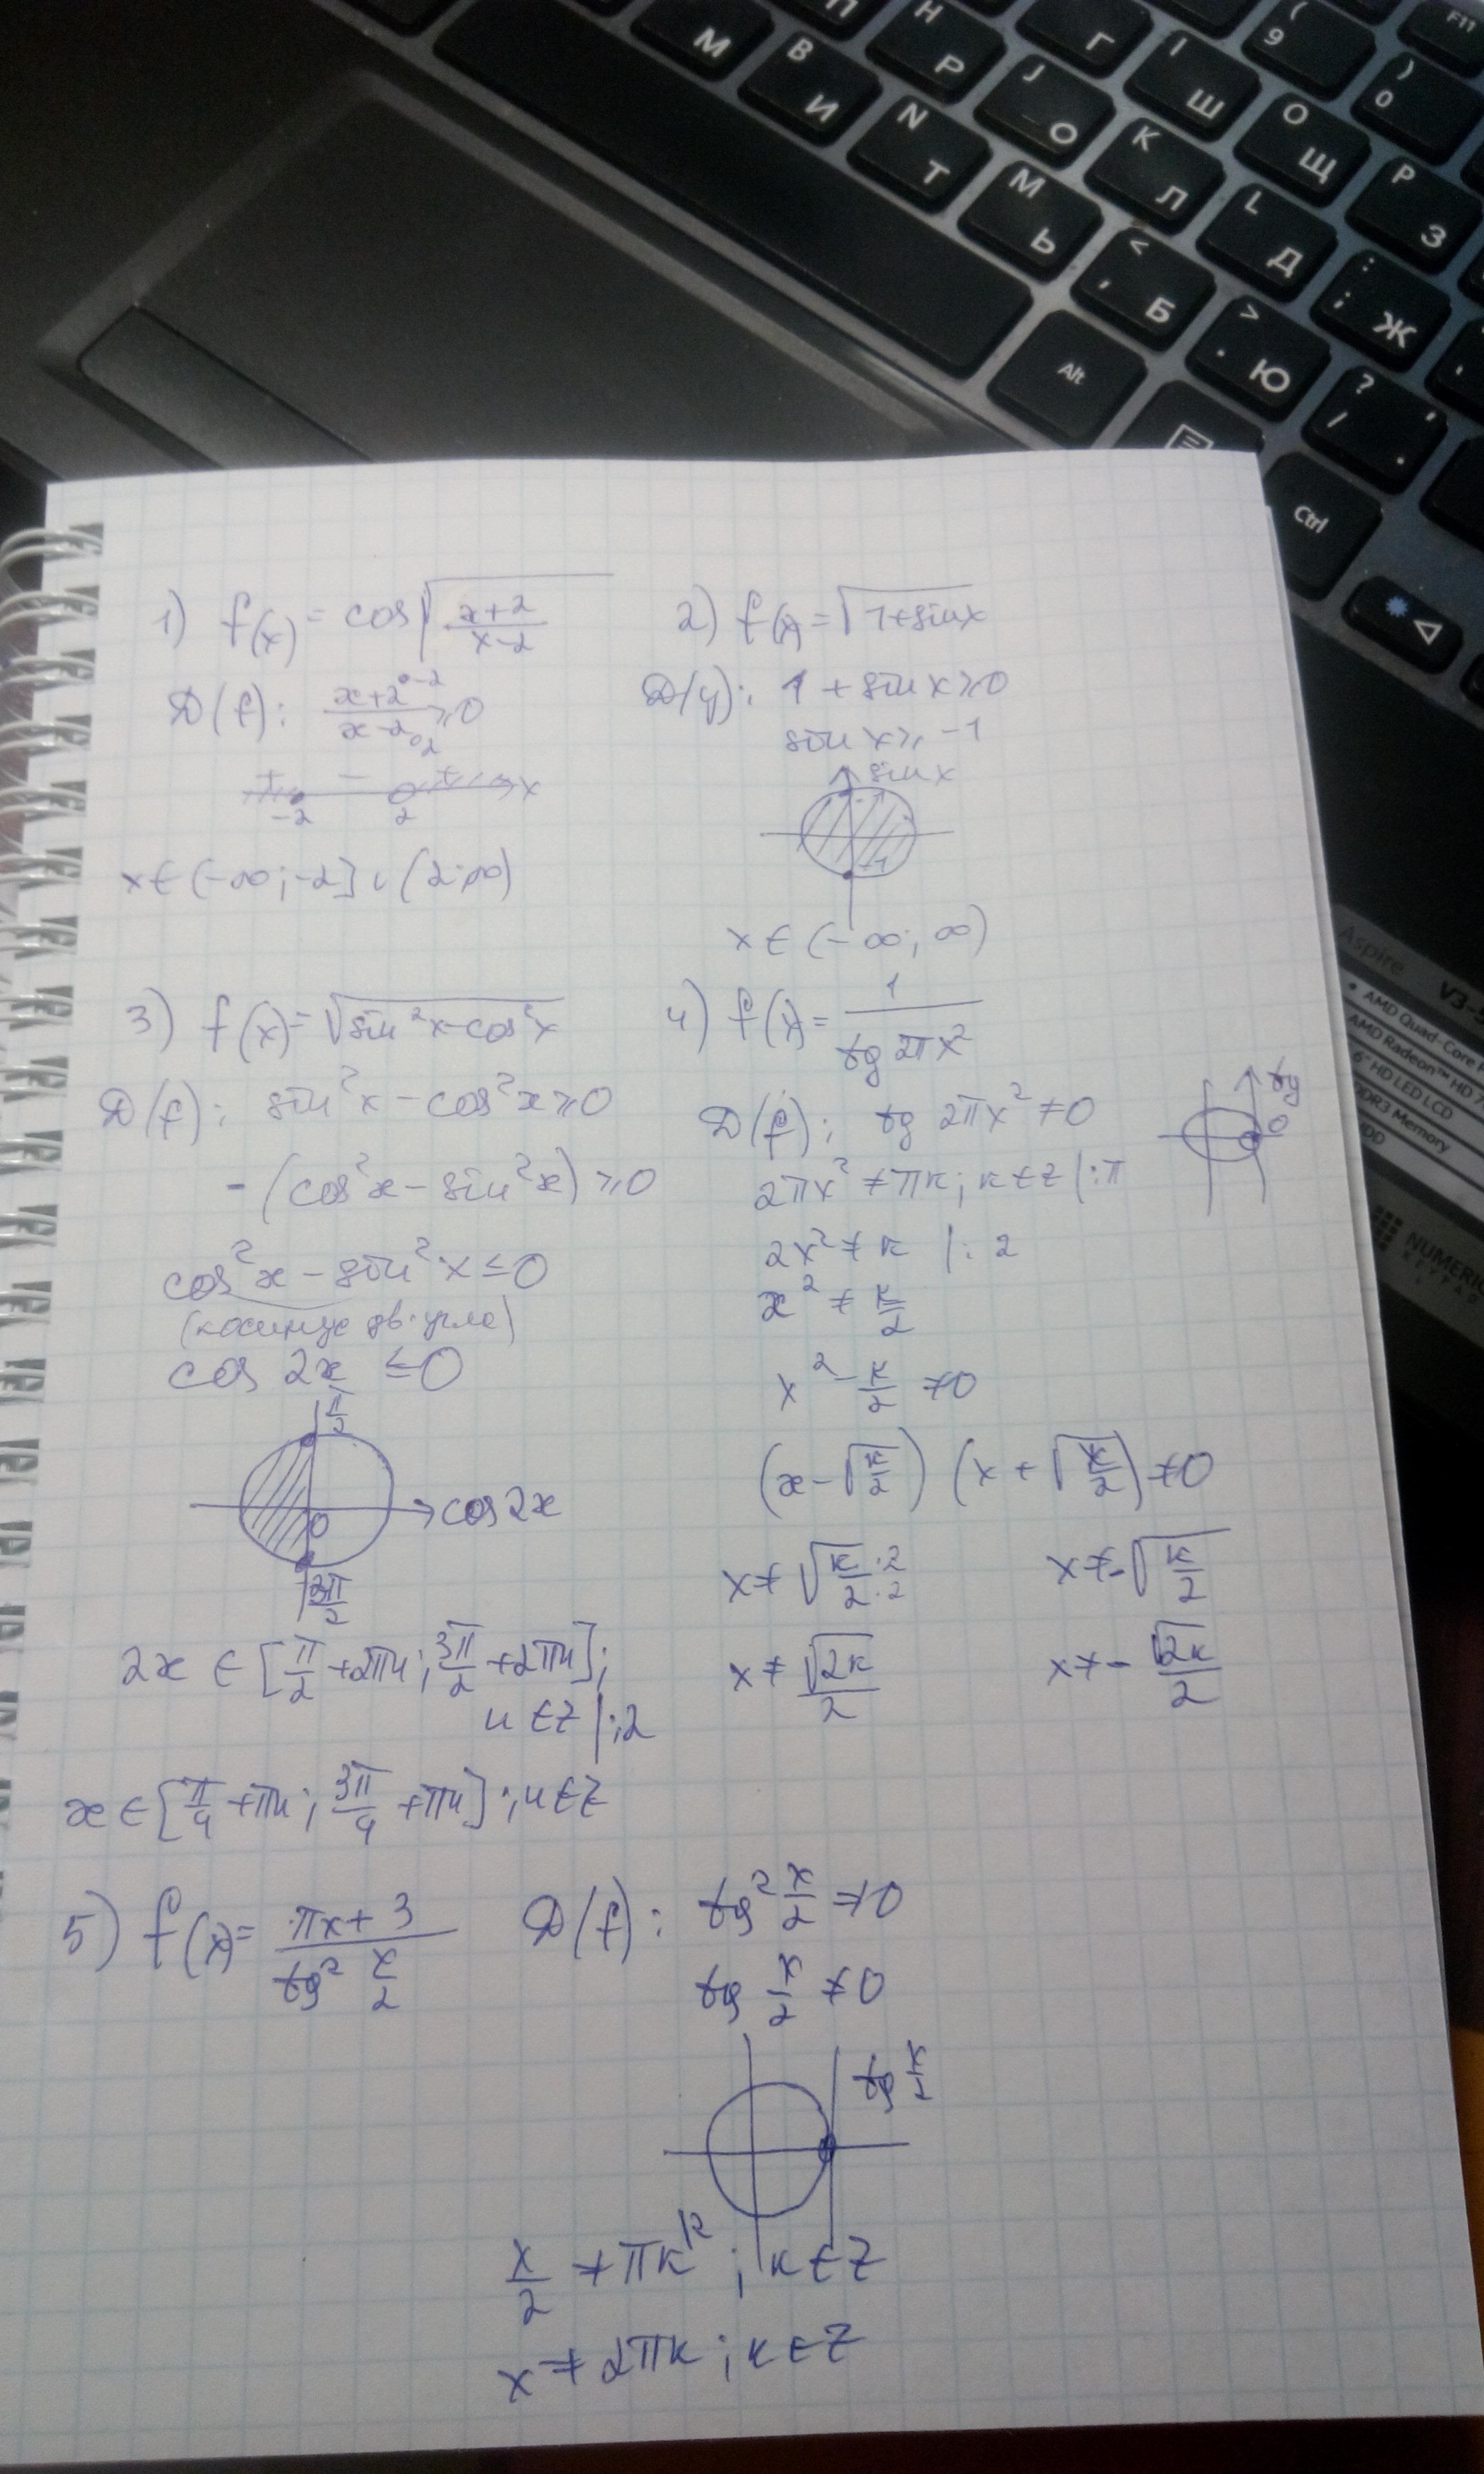 П
F11
М
В И
Н Р
Г
( 9
) 0
N Т
J О
I Ш
О Щ
М Ь
К Л
L Д
Р З
< , Б
: ; Ж
Alt
> . Ю
? /
Ctrl
Aspire V3-5
AMD Quad-Core P
AMD Radeon™ HD
6" HD LED LCD
DDR3 Memory
HDD
NUMERI
KEYPAD
1) f(x) = cos√((x+2)/(x-2))
D(f): (x+2)/(x-2) ≥ 0
-2
2
+ - + x
-2 2
x ∈ (-∞; -2] ∪ (2; ∞)
2) f(x) = √(1+sinx)
D(y): 1 + sin x ≥ 0
sin x ≥ -1
sin x
-1
x ∈ (-∞; ∞)
3) f(x) = √(sin²x-cos²x)
D(f): sin²x - cos²x ≥ 0
-(cos²x - sin²x) ≥ 0
cos²x - sin²x ≤ 0
(косинус дв. угла)
cos 2x ≤ 0
π/2
0 cos2x
3π/2
2x ∈ [π/2 + 2πn; 3π/2 + 2πn];
n ∈ Z |:2
x ∈ [π/4 + πn; 3π/4 + πn]; n ∈ Z
4) f(x) = 1/(tg 2πx²)
D(f): tg 2πx² ≠ 0
tg
0
2πx² ≠ πk; k ∈ Z |:π
2x² ≠ k |:2
x² ≠ k/2
x² - k/2 ≠ 0
(x - √(k/2)) (x + √(k/2)) ≠ 0
x ≠ √(k/2 ·2/·2) x ≠ -√(k/2)
x ≠ √(2k)/2 x ≠ -√(2k)/2
5) f(x) = (πx + 3)/(tg² x/2) D(f): tg² x/2 ≠ 0
tg x/2 ≠ 0
tg x/2
x/2 ≠ πk; k ∈ Z
x ≠ 2πk; k ∈ Z